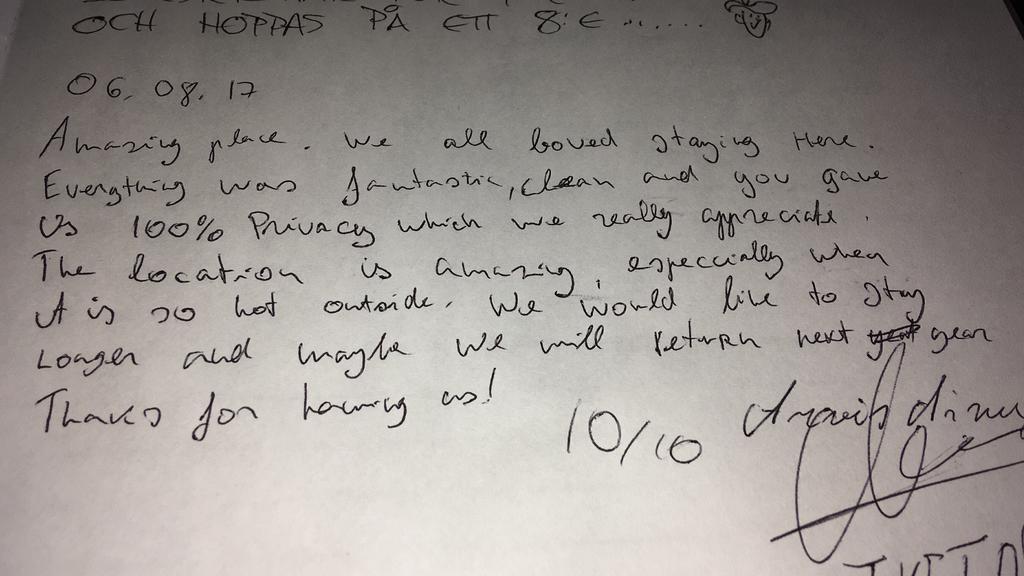 OCH HOPPAS PÅ ETT 8:E ........
06.08.17
Amazing place. We all loved staying Here.
Everything was fantastic, clean and you gave
Us 100% Privacy which we really appreciate.
The location is amazing, especcially when
it is so hot outside. We would like to stay
Longer and maybe we will return next year
Thanks for having us!
10/10